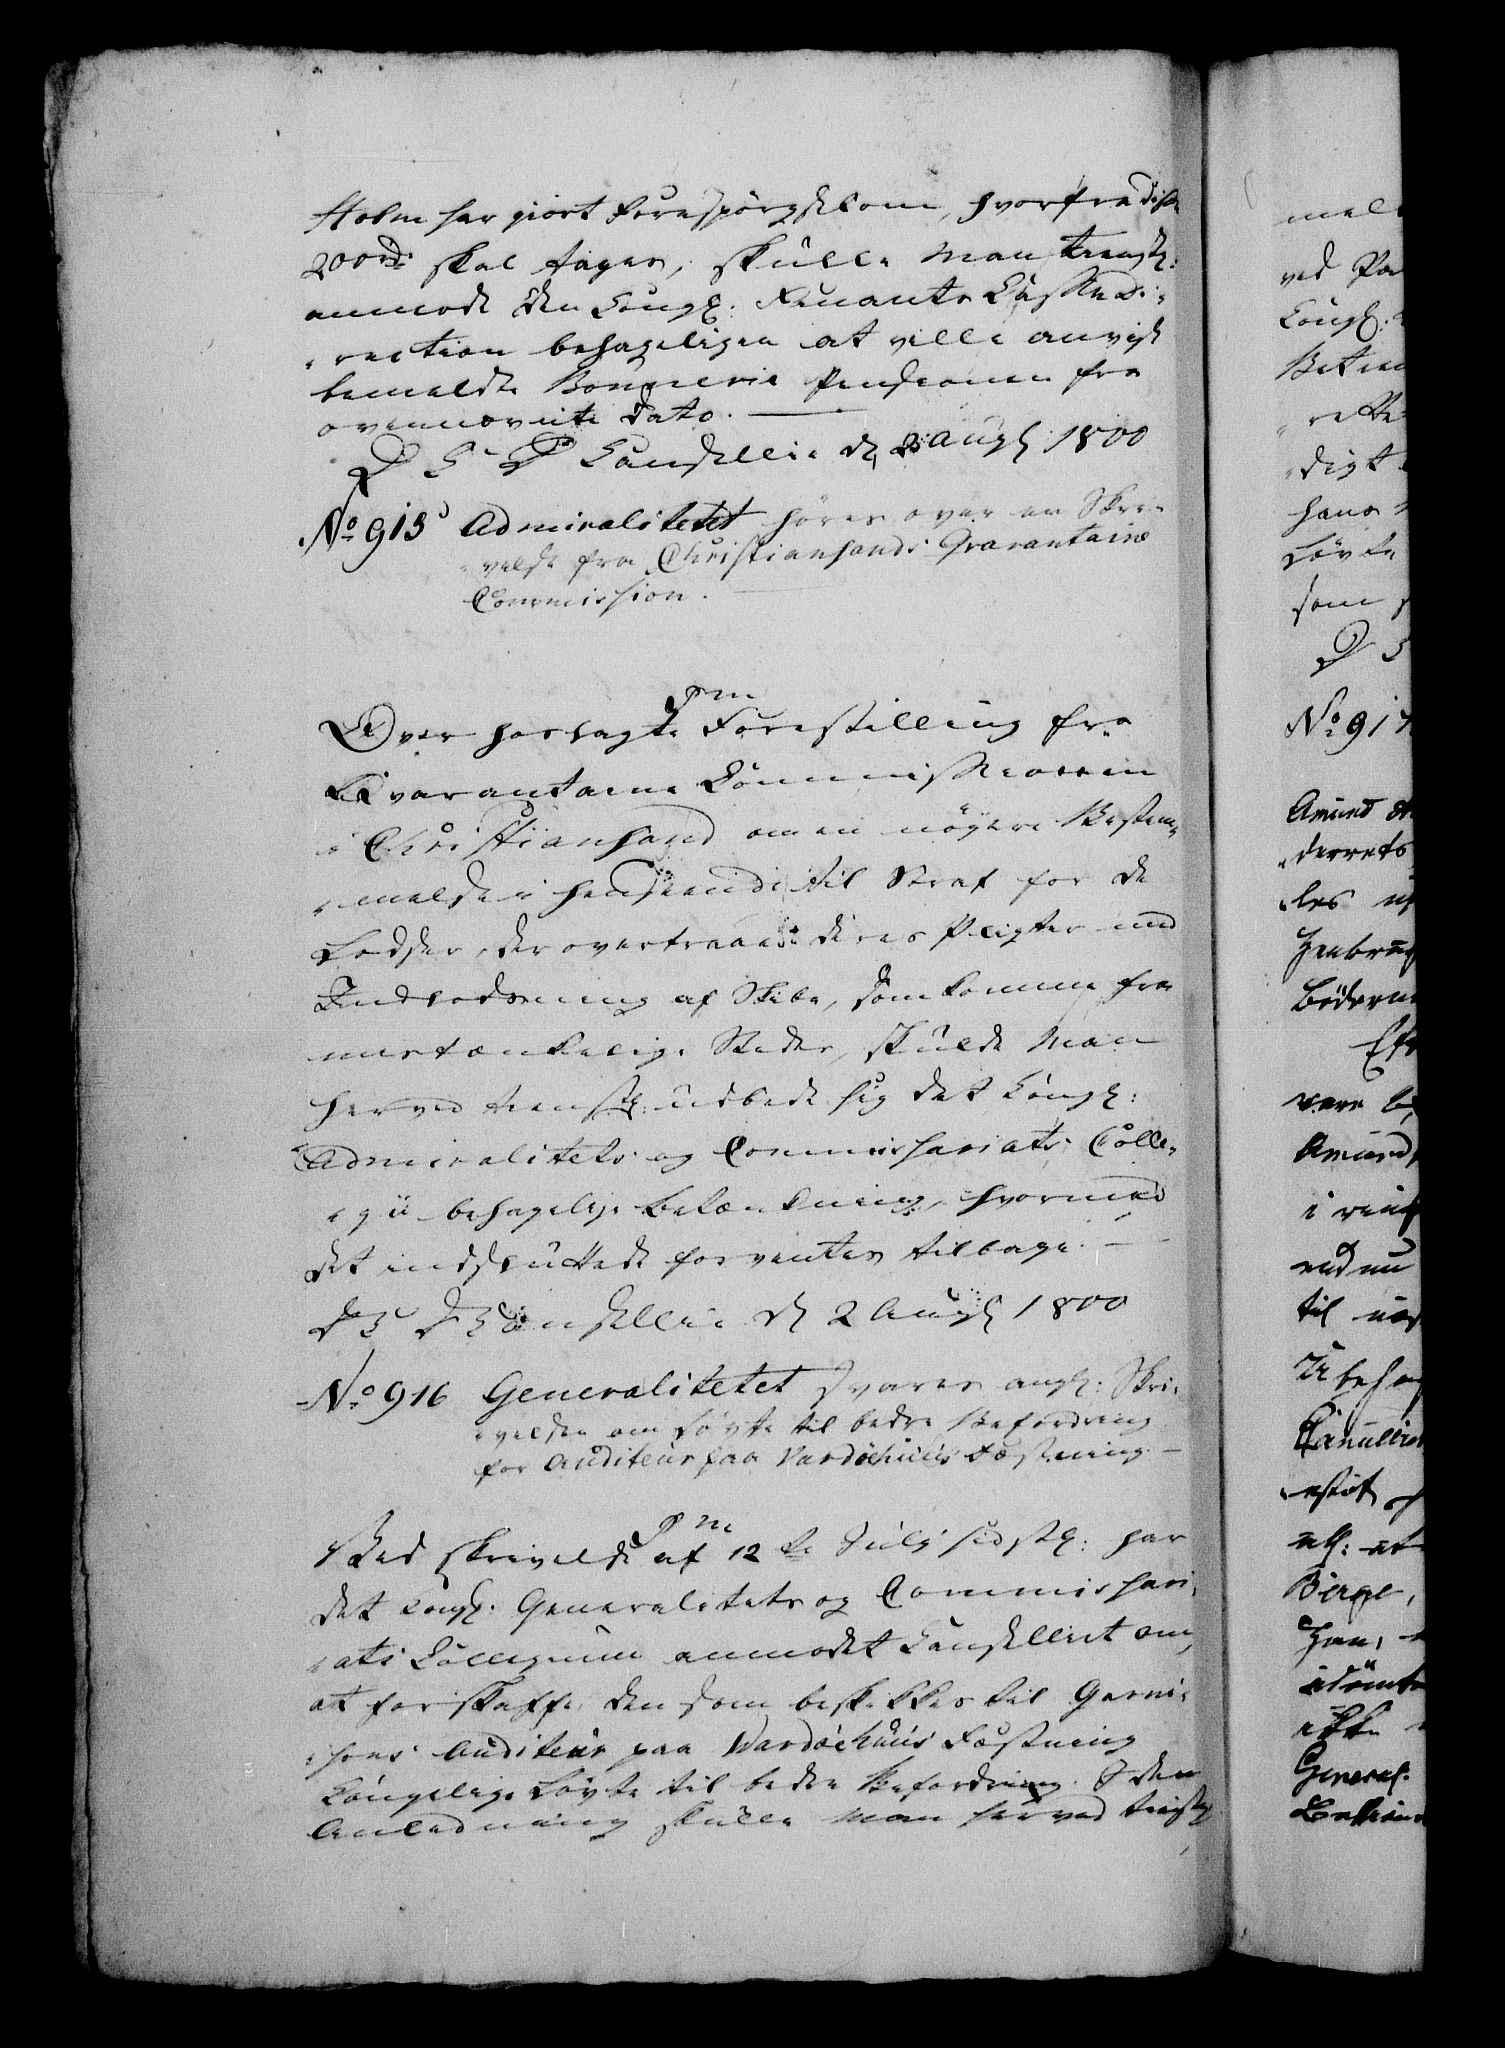 Holm har giort Forespörgsel om, hvorfra disse
200 rd skal tages, skulle Man tienstl:
anmode den Kongl: Finants Casse Di-
rection behageligen at ville anvise
bemeldte Pensionen fra
ovennævnte Dato.
D C D Cancellie d 2 Augs 1800
No 915 Admiralitetet höres over en Skri-
velse fra Christiansands Qvarantaine
Commission.
pm
Over hoslagte Forestilling fra
Qvarantaine Commissionen
i Christiansand om en nøyere Bestem-
melse i Henseende til Straf for de
Lodser, der overtræde deres Pligter med
Indlodsning af Skibe, som komme fra
mistænkelige Steder, skulde Man
herved tienstl: udbede sig det Kongl:
Admiralitets og Commissariats Colle-
gii behagelige Betænkning, hvormed
det indsluttede forventes tilbage.
D C D Cancellie d 2 Augs 1800
No 916 Generalitetet svares angl: Skri-
velsen om Løvte til bedre Befordring
for Auditeur paa Vardöehuus Fæstning
P M
Ved Skrivelse af 12te July sidstl: har
det Kongl: Generalitets og Commissari-
ats Collegium anmodet Cancelliet om,
at forskaffe den som beskikkes til Garni-
sons Auditeur paa Wardöehuus Fæstning
Kongelige Løvte til bedre Befordring. I den
Anledning skulle Man herved tienstl
mel
ved Pa
Kongl:
digt
hans
Løvte
som
No 917
Amund
derrets
les
være
Amund,
i
endnu
til
Cancellie
Birge,
han,
idömt
ikke
General.